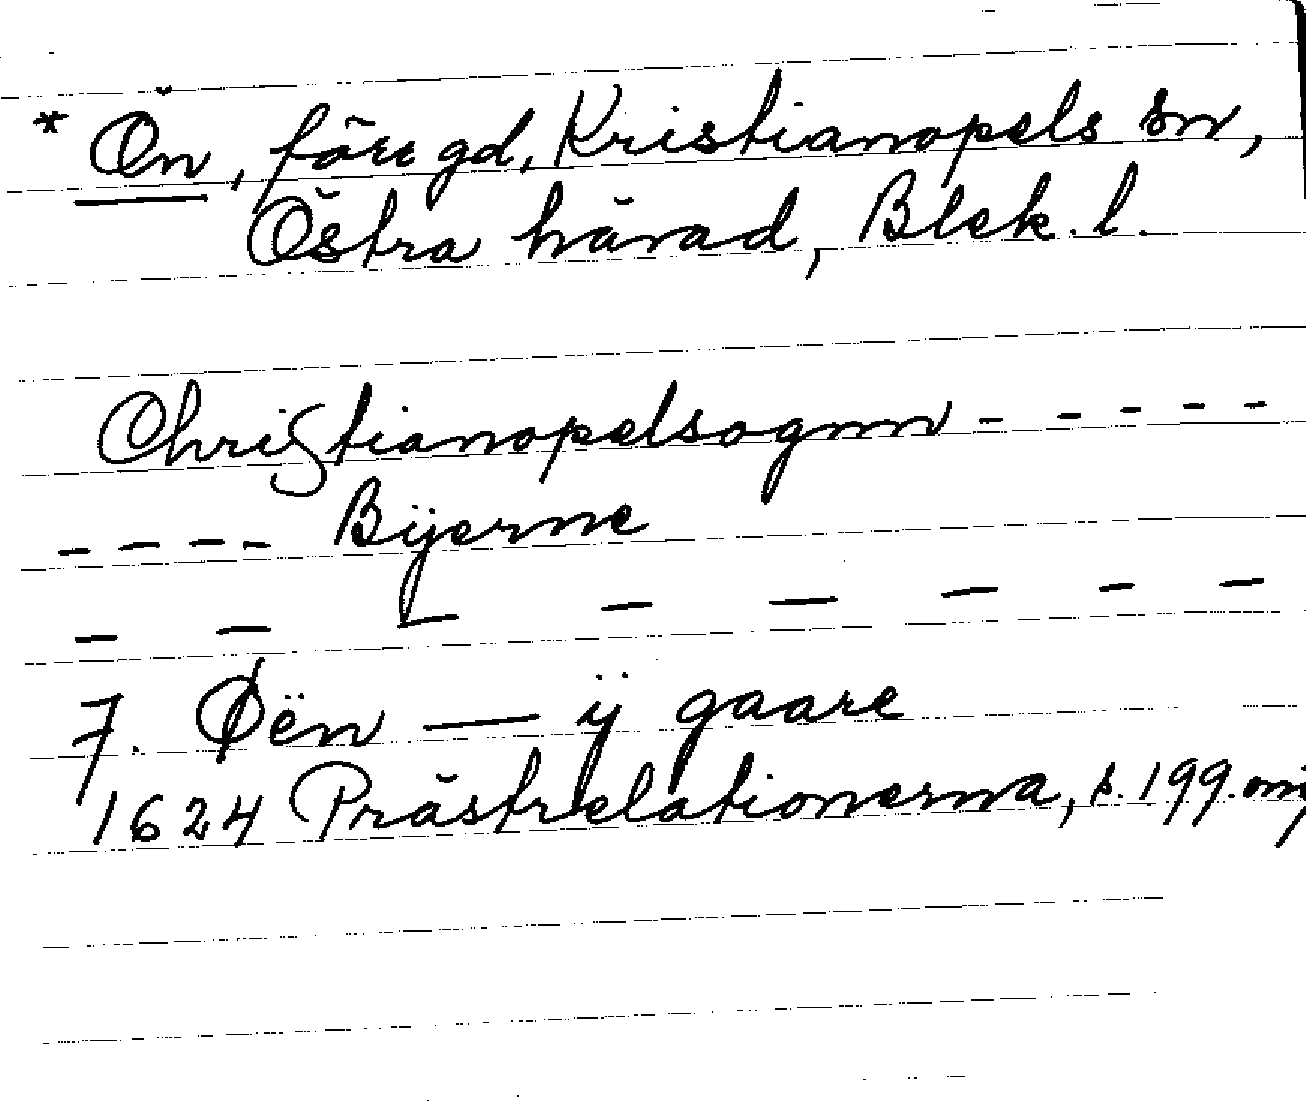 * Ön, före gd, Kristianopels sn,
Östra härad, Blek. l.
Christianopelsognn - - - - -
- - - - Bÿerne
- - - - - - - -
7. Øën — ÿ gaare
1624 Prästrelationerna, s. 199.